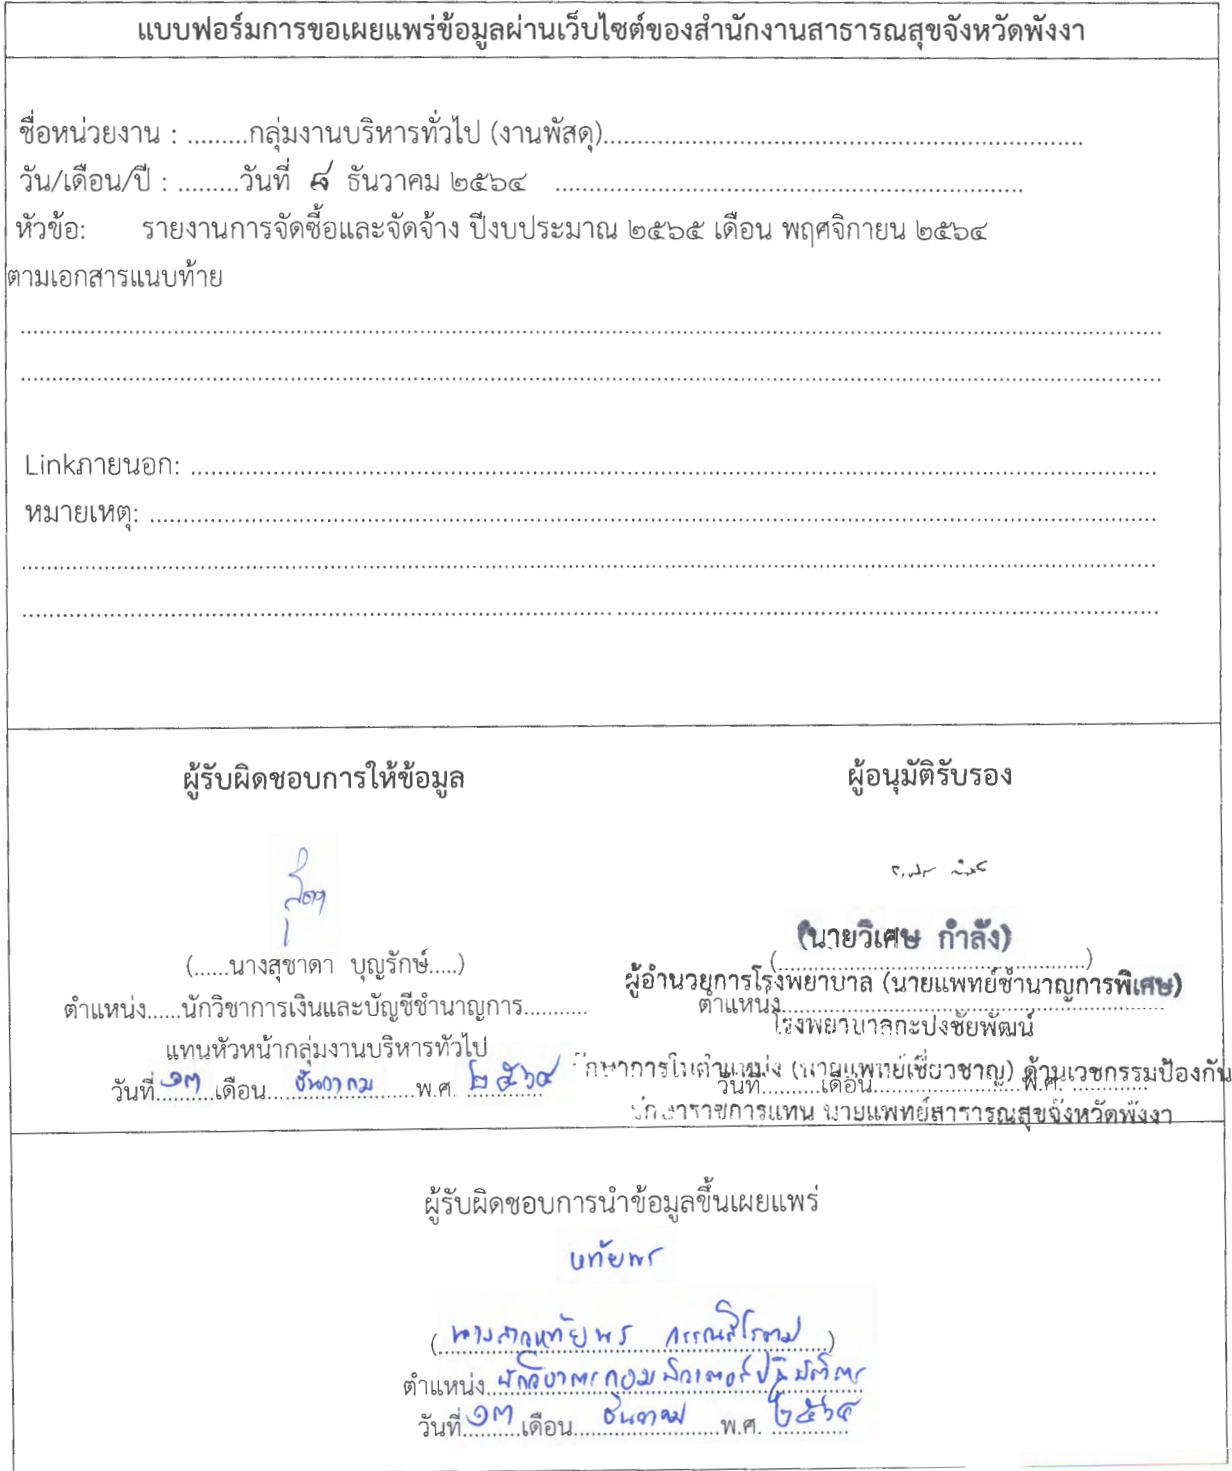 แบบฟอร์มการขอเผยแพร่ข้อมูลผ่านเว็บไซต์ของสำนักงานสาธารณสุขจังหวัดพังงา
ชื่อหน่วยงาน : .........กลุ่มงานบริหารทั่วไป (งานพัสดุ)..........
วัน/เดือน/ปี : .........วันที่ ๘ ธันวาคม ๒๕๖๔ ..........
หัวข้อ: รายงานการจัดซื้อและจัดจ้าง ปีงบประมาณ ๒๕๖๕ เดือน พฤศจิกายน ๒๕๖๔
ตามเอกสารแนบท้าย
Linkภายนอก: ..........
หมายเหตุ: ..........
ผู้รับผิดชอบการให้ข้อมูล
สุชาดา
(......นางสุชาดา บุญรักษ์.....)
ตำแหน่ง......นักวิชาการเงินและบัญชีชำนาญการ...........
แทนหัวหน้ากลุ่มงานบริหารทั่วไป
วันที่ ๑๓ เดือน ธันวาคม พ.ศ. ๒๕๖๔
ผู้อนุมัติรับรอง
(นายวิเศษ กำลัง)
ผู้อำนวยการโรงพยาบาล (นายแพทย์ชำนาญการพิเศษ)
ตำแหน่ง..........
โรงพยาบาลกะปงชัยพัฒน์
รักษาการในตำแหน่ง (นายแพทย์เชี่ยวชาญ) ด้านเวชกรรมป้องกัน
วันที่..........เดือน..........พ.ศ. ..........
รักษาราชการแทน นายแพทย์สาธารณสุขจังหวัดพังงา
ผู้รับผิดชอบการนำข้อมูลขึ้นเผยแพร่
หทัยพร
(นางสาวหทัยพร )
ตำแหน่ง นักวิชาการคอมพิวเตอร์ปฏิบัติการ
วันที่ ๑๓ เดือน ธันวาคม พ.ศ. ๒๕๖๔